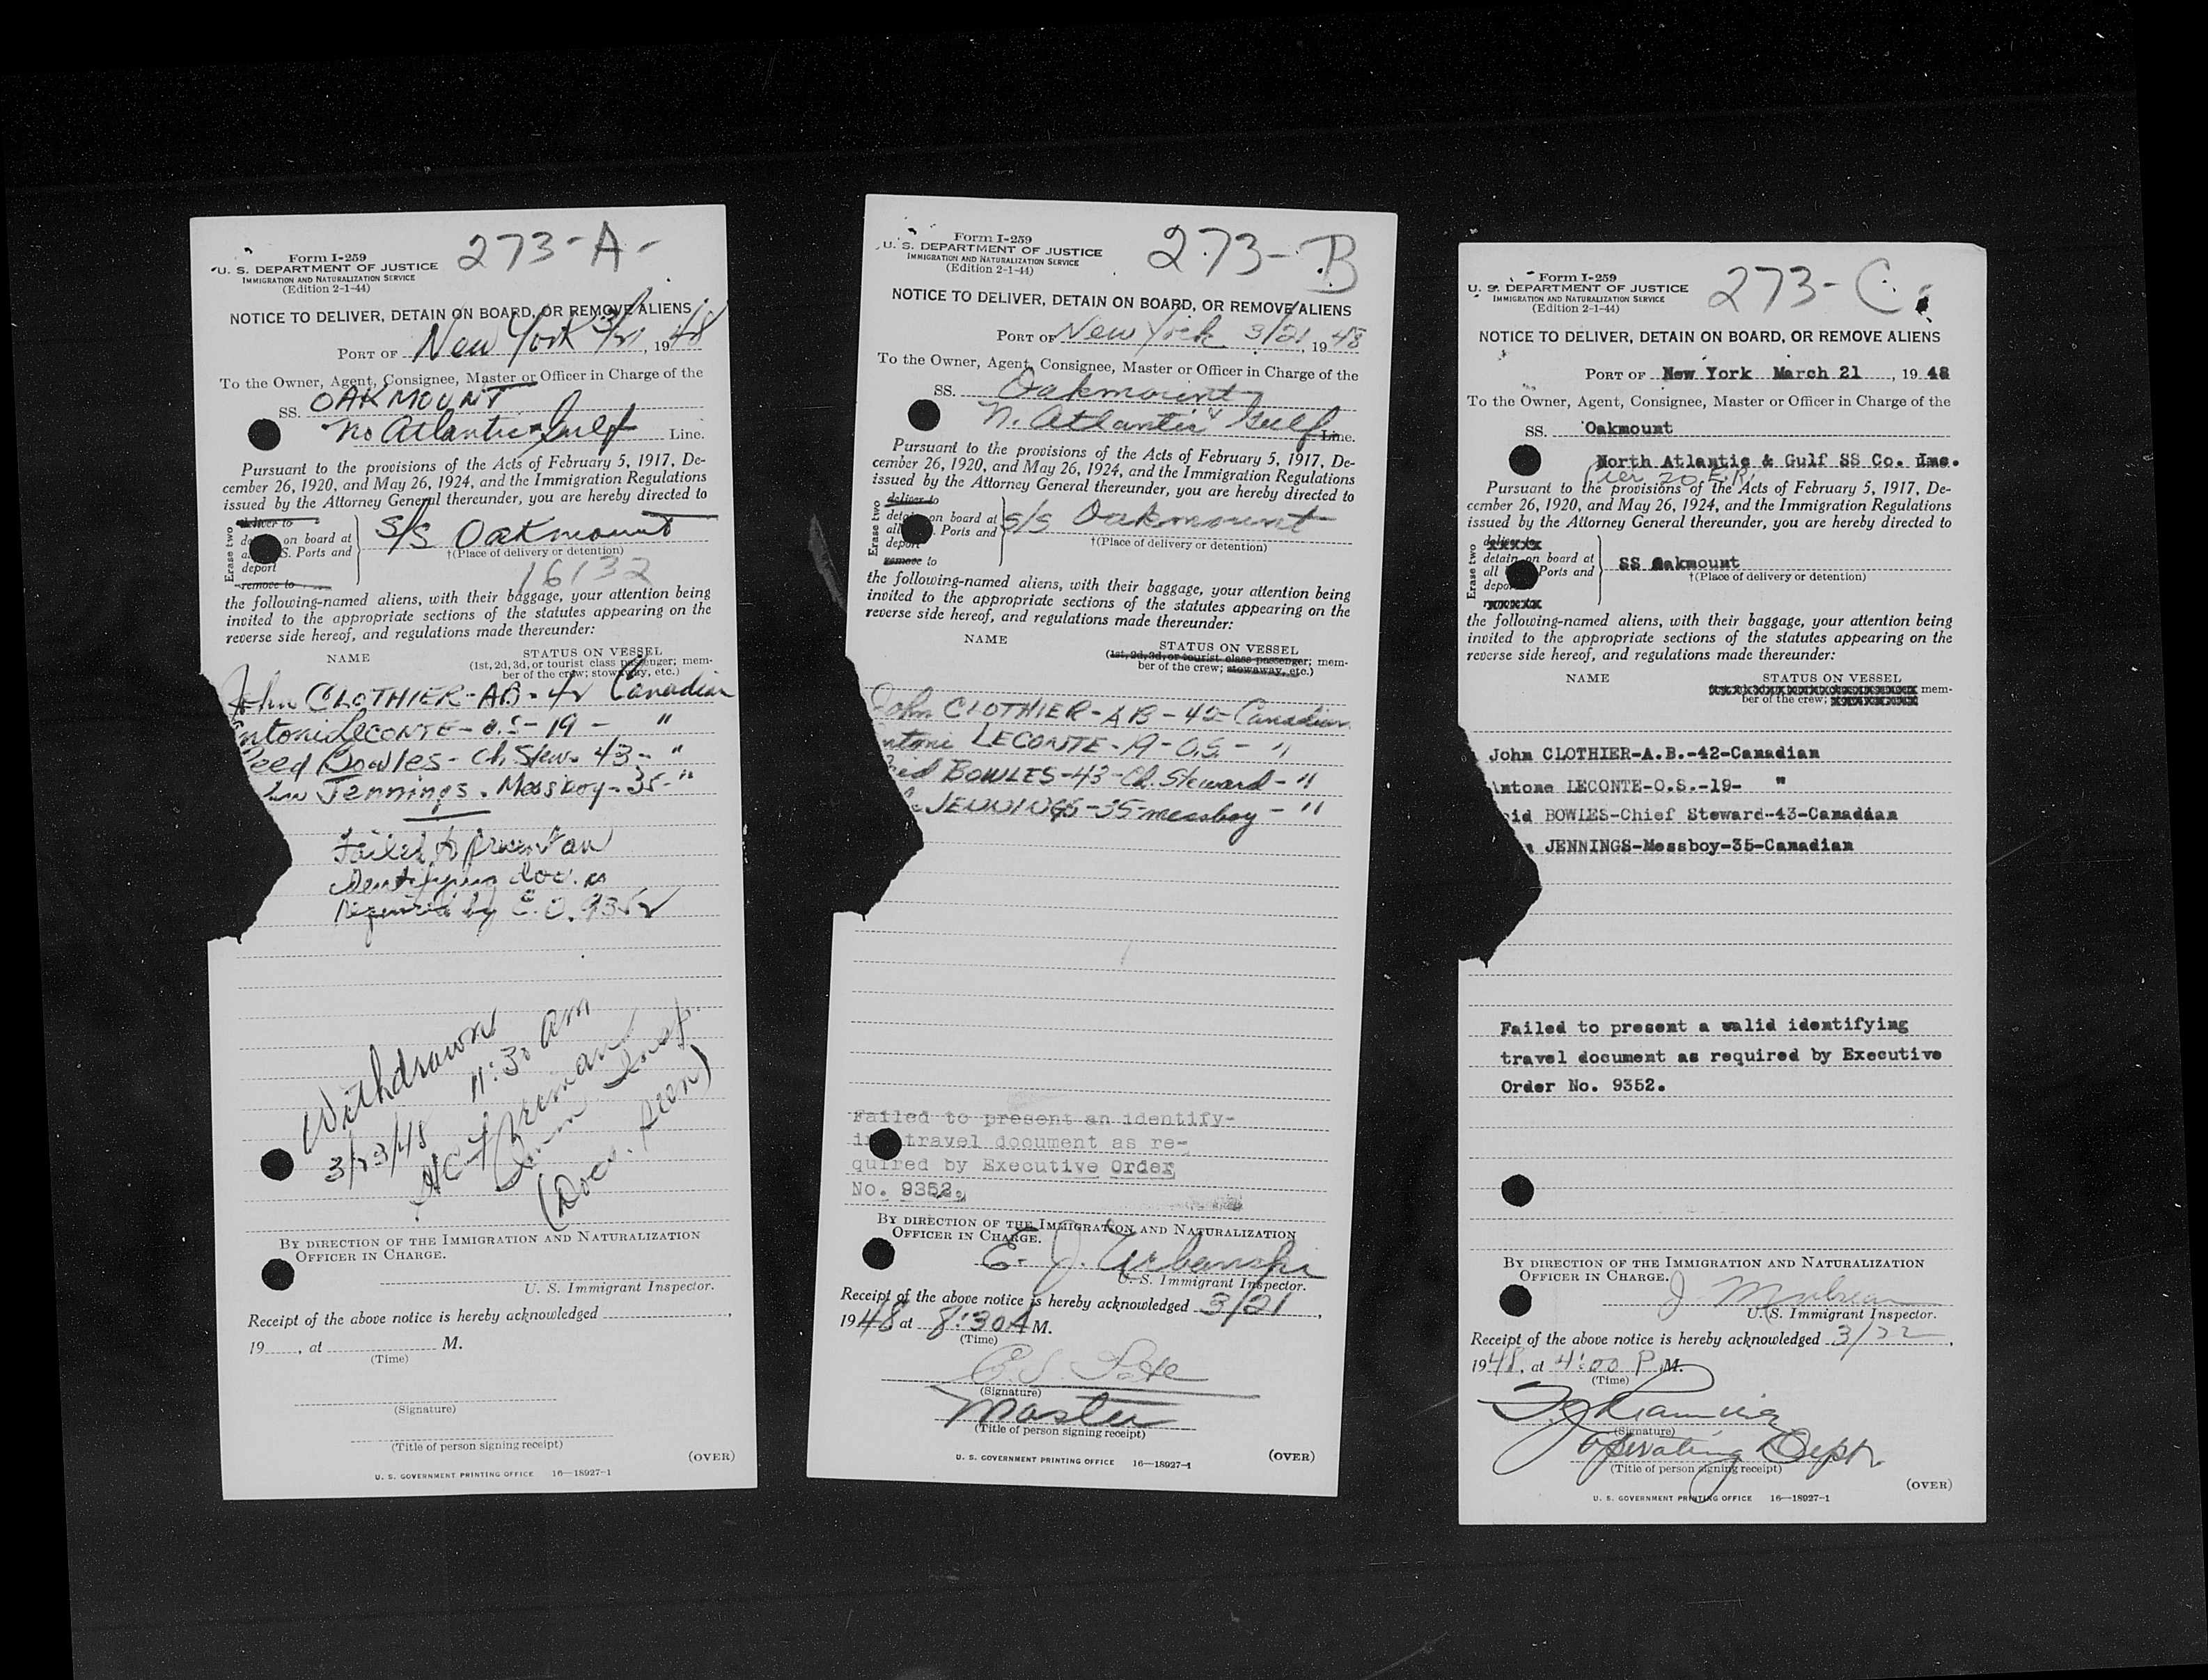 273-A-
Form I-259
U. S. DEPARTMENT OF JUSTICE
IMMIGRATION AND NATURALIZATION SERVICE
(Edition 2-1-44)
NOTICE TO DELIVER, DETAIN ON BOARD, OR REMOVE ALIENS
PORT OF New York 3/21, 1948
To the Owner, Agent, Consignee, Master or Officer in Charge of the
SS. OAKMOUNT
No Atlantic & Gulf Line.
Pursuant to the provisions of the Acts of February 5, 1917, De-
cember 26, 1920, and May 26, 1924, and the Immigration Regulations
issued by the Attorney General thereunder, you are hereby directed to
Erase two
deliver to
on board at
S. Ports and
deport
remove to
S/S Oakmount
†(Place of delivery or detention)
16132
the following-named aliens, with their baggage, your attention being
invited to the appropriate sections of the statutes appearing on the
reverse side hereof, and regulations made thereunder:
NAME
STATUS ON VESSEL
(1st, 2d, 3d, or tourist class passenger; mem-
ber of the crew; stowaway, etc.)
John CLOTHIER-AB-42 Canadian
ntoni LECONTE-O.S-19- "
eed Bowles-Ch. Stew. 43- "
Jennings. Messboy-35-"
Failed to present an
identifying doc. as
required by E.O. 9352
Withdrawn
3/23/48 11:30 am
Imm Insp.
(Docs. seen)
BY DIRECTION OF THE IMMIGRATION AND NATURALIZATION
OFFICER IN CHARGE.
U. S. Immigrant Inspector.
Receipt of the above notice is hereby acknowledged
19 , at M.
(Time)
(Signature)
(Title of person signing receipt)
(OVER)
U. S. GOVERNMENT PRINTING OFFICE 16—18927-1
273-B
Form I-259
U. S. DEPARTMENT OF JUSTICE
IMMIGRATION AND NATURALIZATION SERVICE
(Edition 2-1-44)
NOTICE TO DELIVER, DETAIN ON BOARD, OR REMOVE ALIENS
PORT OF New York 3/21, 1948
To the Owner, Agent, Consignee, Master or Officer in Charge of the
SS. Oakmount
N. Atlantic & Gulf Line.
Pursuant to the provisions of the Acts of February 5, 1917, De-
cember 26, 1920, and May 26, 1924, and the Immigration Regulations
issued by the Attorney General thereunder, you are hereby directed to
Erase two
deliver to
on board at
all Ports and
deport
remove to
S/S Oakmount
†(Place of delivery or detention)
the following-named aliens, with their baggage, your attention being
invited to the appropriate sections of the statutes appearing on the
reverse side hereof, and regulations made thereunder:
NAME
STATUS ON VESSEL
(1st, 2d, 3d, or tourist class passenger; mem-
ber of the crew; stowaway, etc.)
John CLOTHIER-AB-42-Canadian
ntoni LECONTE-19-O.S.- "
eid BOWLES-43-Ch. Steward- "
JENNINGS-35-messboy- "
Failed to present an identify-
travel document as re-
quired by Executive Order
No. 9352.
BY DIRECTION OF THE IMMIGRATION AND NATURALIZATION
OFFICER IN CHARGE.
E. J. Urbanski
U. S. Immigrant Inspector.
Receipt of the above notice is hereby acknowledged 3/21,
1948 at 8:30A M.
(Time)
(Signature)
Master
(Title of person signing receipt)
(OVER)
U. S. GOVERNMENT PRINTING OFFICE 16—18927-1
273-C
Form I-259
U. S. DEPARTMENT OF JUSTICE
IMMIGRATION AND NATURALIZATION SERVICE
(Edition 2-1-44)
NOTICE TO DELIVER, DETAIN ON BOARD, OR REMOVE ALIENS
PORT OF New York March 21, 1948
To the Owner, Agent, Consignee, Master or Officer in Charge of the
SS. Oakmount
North Atlantic & Gulf SS Co. Inc.
Pier 20 E.R.
Pursuant to the provisions of the Acts of February 5, 1917, De-
cember 26, 1920, and May 26, 1924, and the Immigration Regulations
issued by the Attorney General thereunder, you are hereby directed to
Erase two
detain on board at
all Ports and
SS Oakmount
†(Place of delivery or detention)
the following-named aliens, with their baggage, your attention being
invited to the appropriate sections of the statutes appearing on the
reverse side hereof, and regulations made thereunder:
NAME
STATUS ON VESSEL
mem-
ber of the crew;
John CLOTHIER-A.B.-42-Canadian
Antone LECONTE-O.S.-19- "
id BOWLES-Chief Steward-43-Canadian
JENNINGS-Messboy-35-Canadian
Failed to present a valid identifying
travel document as required by Executive
Order No. 9352.
BY DIRECTION OF THE IMMIGRATION AND NATURALIZATION
OFFICER IN CHARGE.
U. S. Immigrant Inspector.
Receipt of the above notice is hereby acknowledged 3/22,
1948, at 4:00 P.M.
(Time)
(Signature)
Operating Dept.
(Title of person signing receipt)
(OVER)
U. S. GOVERNMENT PRINTING OFFICE 16—18927-1